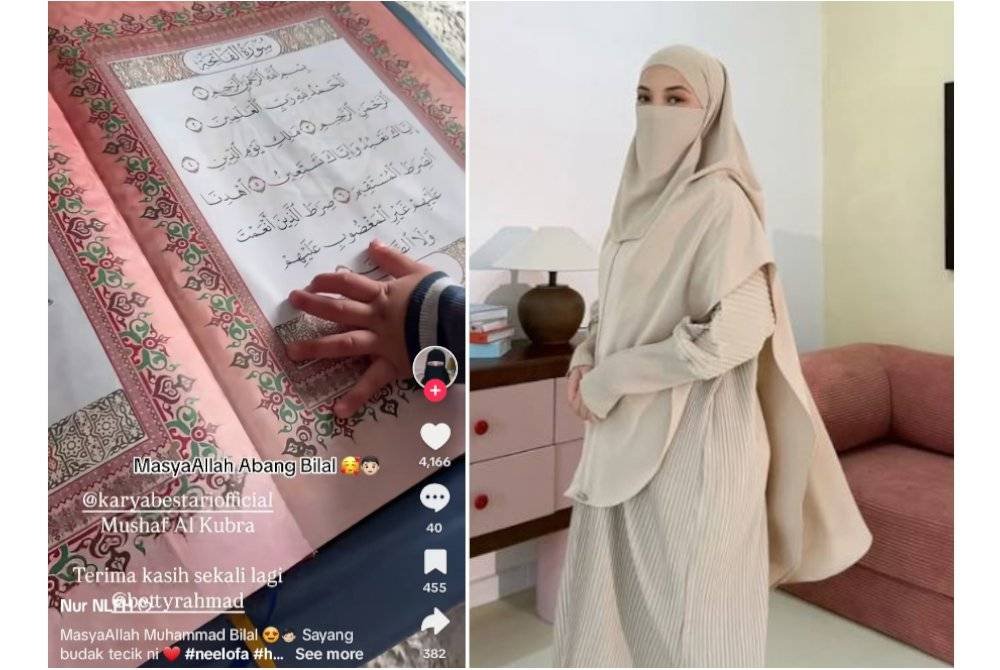 سُورَةُ الفَاتِحَةِ
بِسْمِ اللَّهِ الرَّحْمَٰنِ الرَّحِيمِ ١
الْحَمْدُ لِلَّهِ رَبِّ الْعَالَمِينَ ٢
الرَّحْمَٰنِ الرَّحِيمِ ٣ مَالِكِ يَوْمِ الدِّينِ ٤
إِيَّاكَ نَعْبُدُ وَإِيَّاكَ نَسْتَعِينُ ٥ اهْدِنَا
الصِّرَاطَ الْمُسْتَقِيمَ ٦ صِرَاطَ الَّذِينَ أَنْعَمْتَ
عَلَيْهِمْ غَيْرِ الْمَغْضُوبِ عَلَيْهِمْ
وَلَا
MasyaAllah Abang Bilal 🥰👦🏻
@karyabestariofficial
Mushaf Al Kubra
Terima kasih sekali lagi
@bottyrahmad
Nur
MasyaAllah Muhammad Bilal 😍👦🏻 Sayang
budak tecik ni ❤️ #neelofa #h... See more
4,166
40
455
382